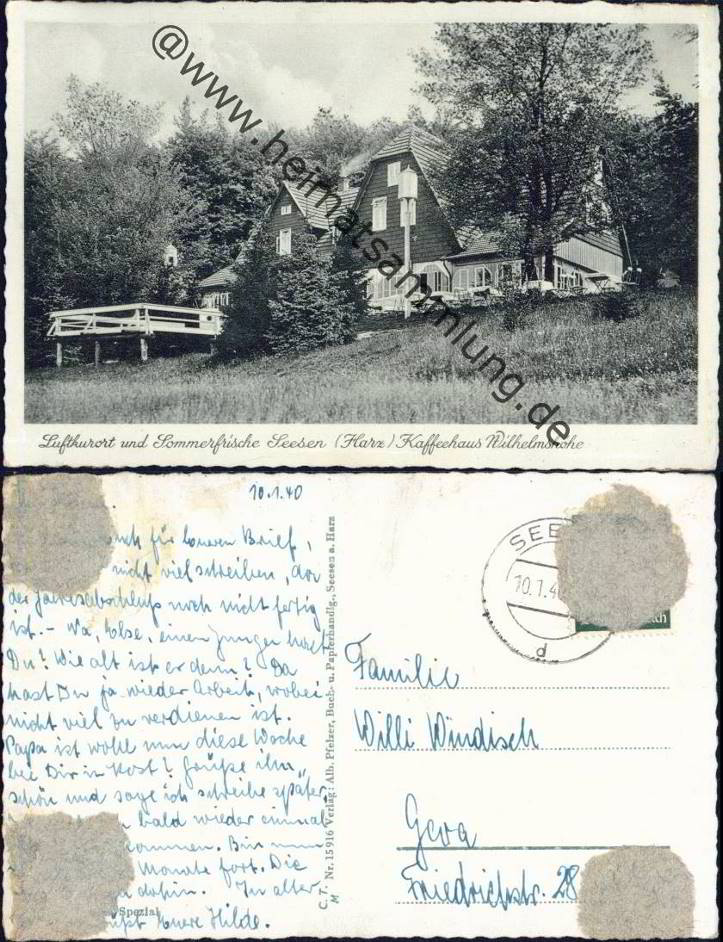 @www.heimatsammlung.de
Luftkurort und Sommerfrische Seesen (Harz) Kaffeehaus Wilhelmshöhe
10.1.40
für Brief,
nicht viel schreiben, da
der Jahresabschluß noch nicht fertig
ist. - Na, Else, einen Jungen hast
Du? Wie alt ist er denn? Da
hast Du ja wieder Arbeit, wobei
nicht viel zu verdienen ist.
Papa ist wohl nun diese Woche
bei Dir in Kost? Grüße ihn
schön und sage ich schreibe später.
bald wieder einmal
kommen. Bin nun
Monate fort. Die
dahin. In alter
Eure Hilde.
Spezial
C.T. M Nr. 15916 Verlag: Alb. Pfelzer, Buch- u. Papierhandlg., Seesen a. Harz
SEE
10.1.40
d
Familie
Willi Windisch
Gera
Friedrichstr. 28